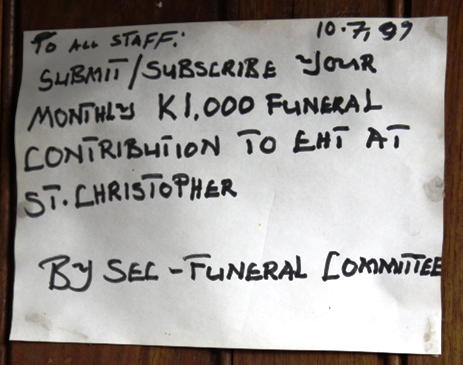 TO ALL STAFF: 10.7,97
SUBMIT/SUBSCRIBE YOUR
MONTHLY K1,000 FUNERAL
CONTRIBUTION TO EHT AT
ST.CHRISTOPHER
BY SEC - FUNERAL COMMITTEE